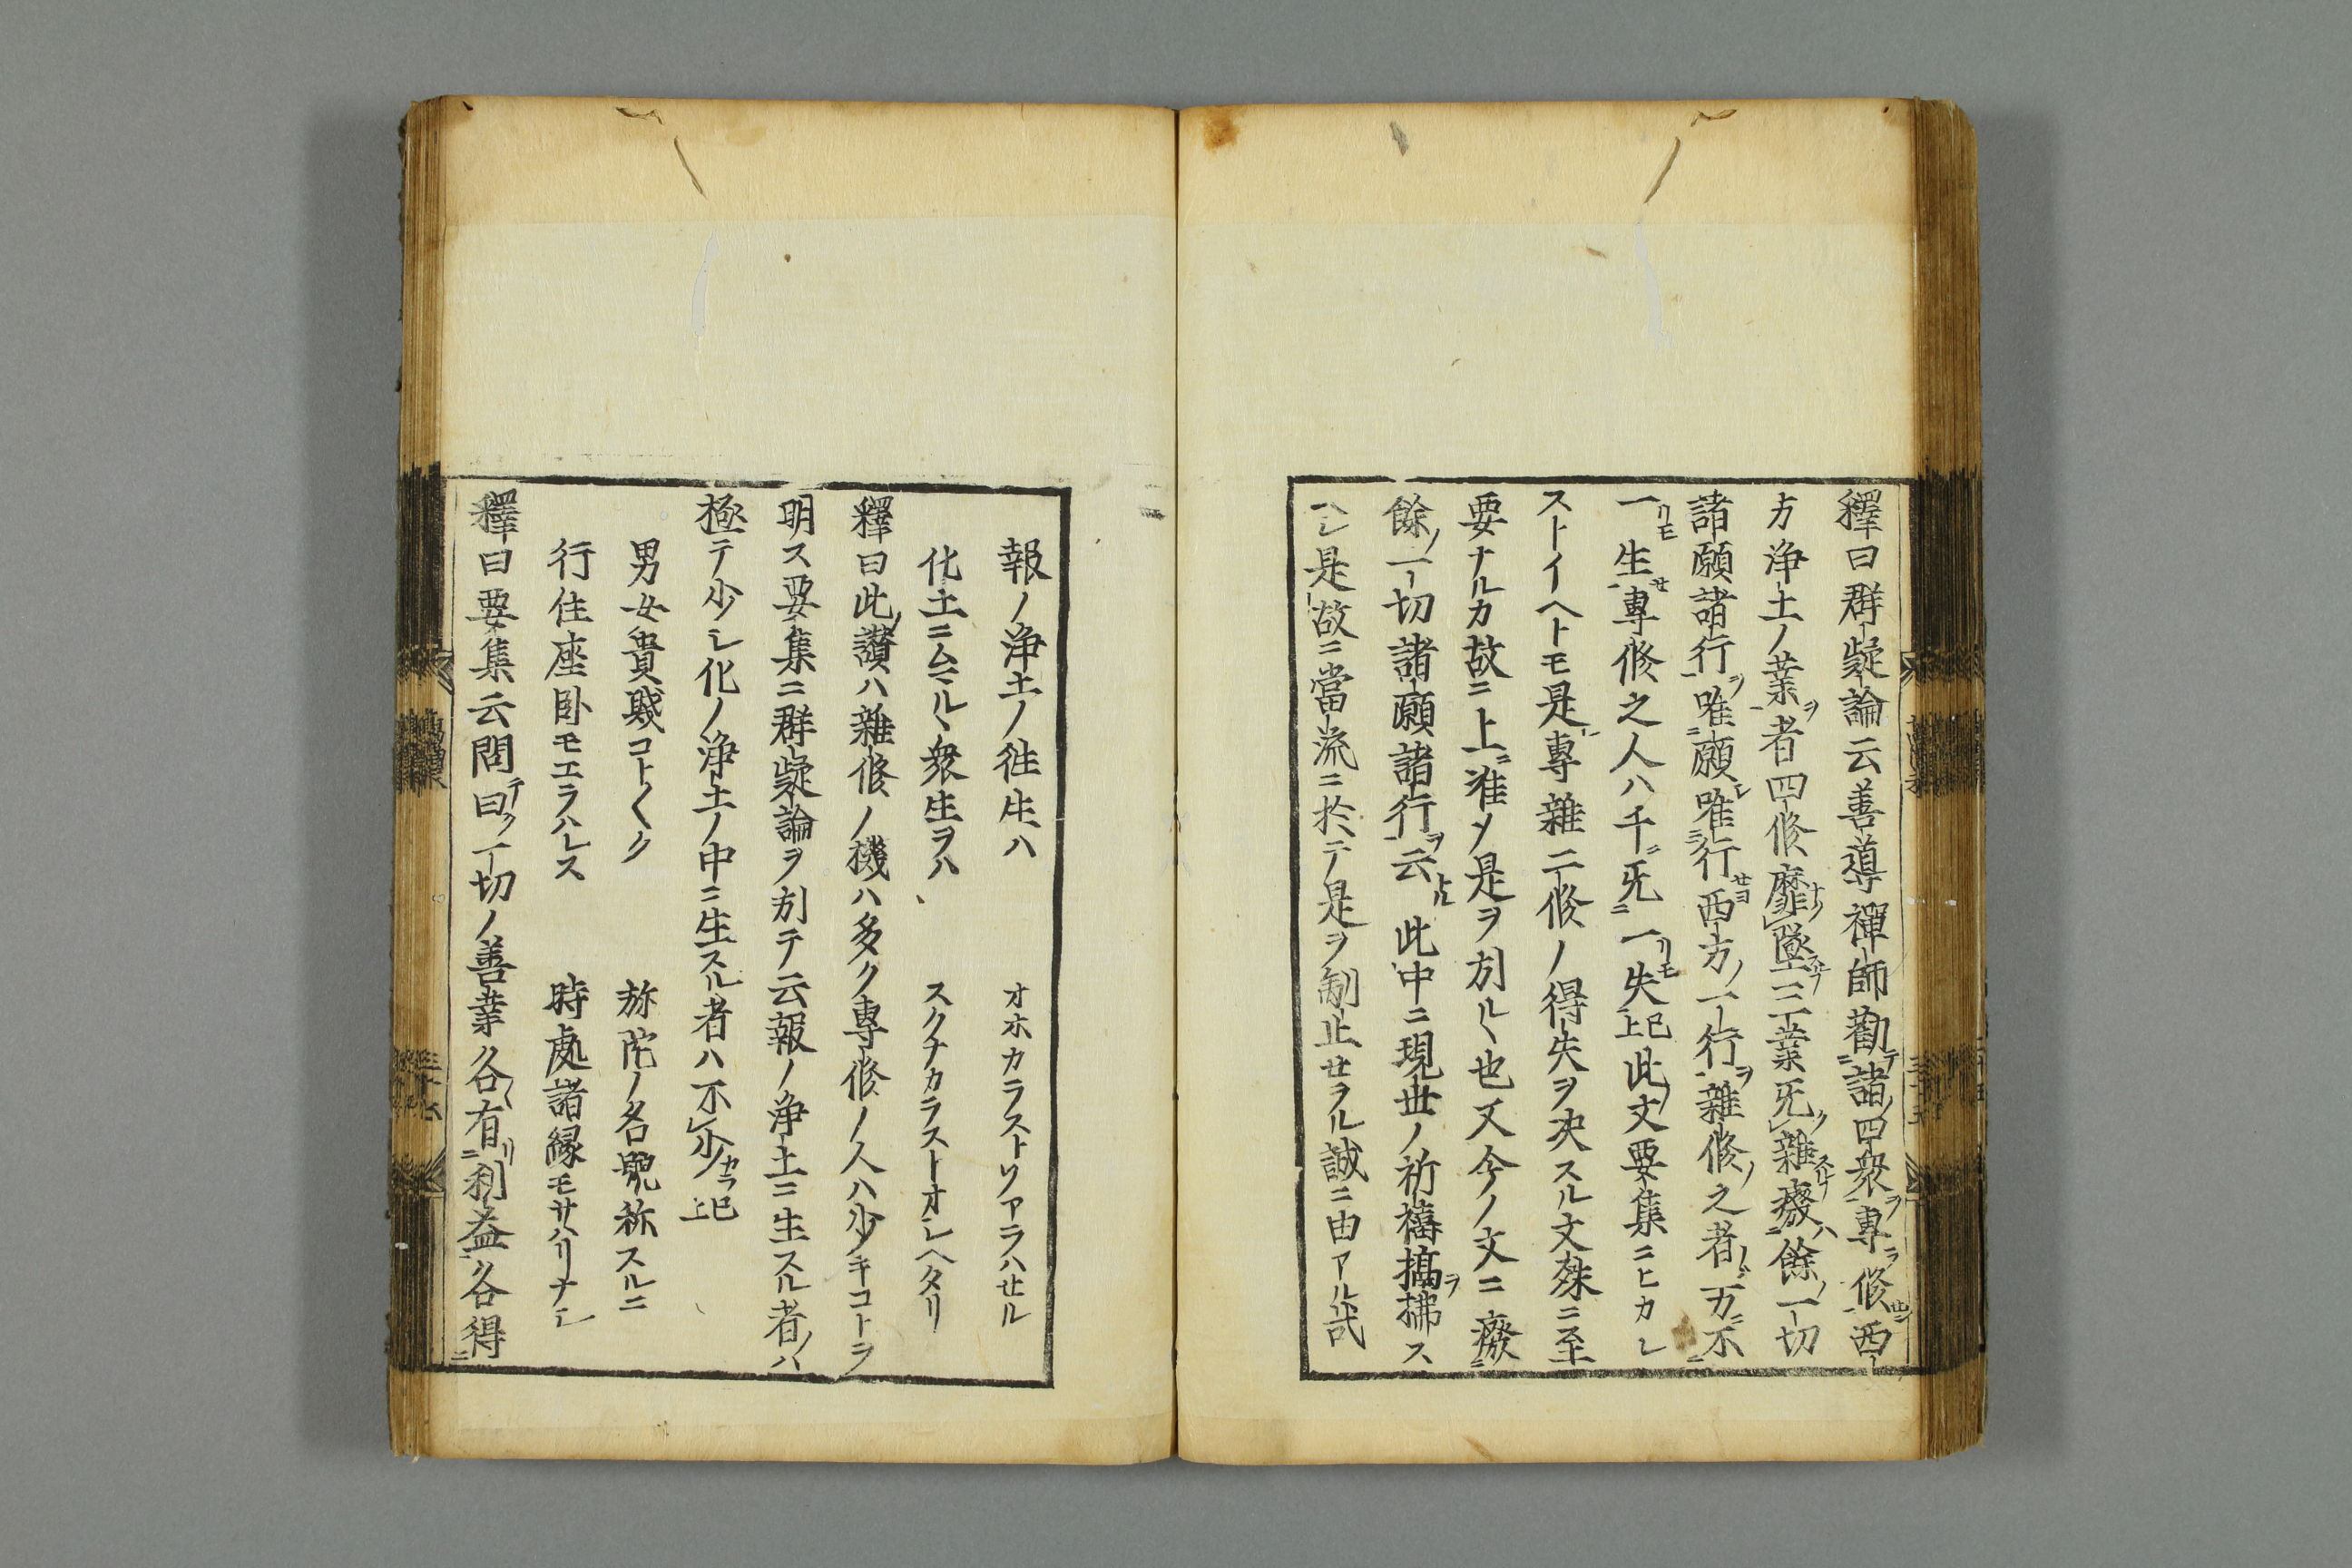 釋曰群疑論云善導禪師勸テ諸ノ四衆ヲ專ラ修セシ西
方浄土ノ業ヲ者四修靡ク墜スル三業旡ク雜スル廢ハ餘ノ一切
諸願諸行ヲ唯願シ唯行セヨ西方ノ一行ヲ雜修ノ之者ハ万ニ不
一リモ生セ專修之人ハ千ニ旡一リモ失已上此ノ文要集ニヒカレ
ストイヘトモ是專雜二修ノ得失ヲ决スル文殊ニ至
要ナルカ故ニ上ニ准メ是ヲ引ルヽ也又今ノ文ニ廢
餘ノ一切諸願諸行ヲ云ヘル此中ニ現世ノ祈禱ヲ擣拂ス
ヘシ是故ニ當流ニ於テ是ヲ制止セラル誠ニ由アル哉
報ノ浄土ノ徃生ハ　オホカラストソアラハセル
化土ニムマルヽ衆生ヲハ　スクナカラストオシヘタリ
釋曰此ノ讃ハ雜修ノ機ハ多ク專修ノ人ハ少キコトヲ
明ス要集ニ群疑論ヲ引テ云報ノ浄土ニ生スル者ノハ
極テ少シ化ノ浄土ノ中ニ生スル者ハ不少カラ已上
男女貴賤コト〱ク　弥陀ノ名號称スルニ
行住座卧モエラハレス　時處諸縁モサハリナシ
釋曰要集云問テ曰ク一切ノ善業各有リ利益各得
三十六